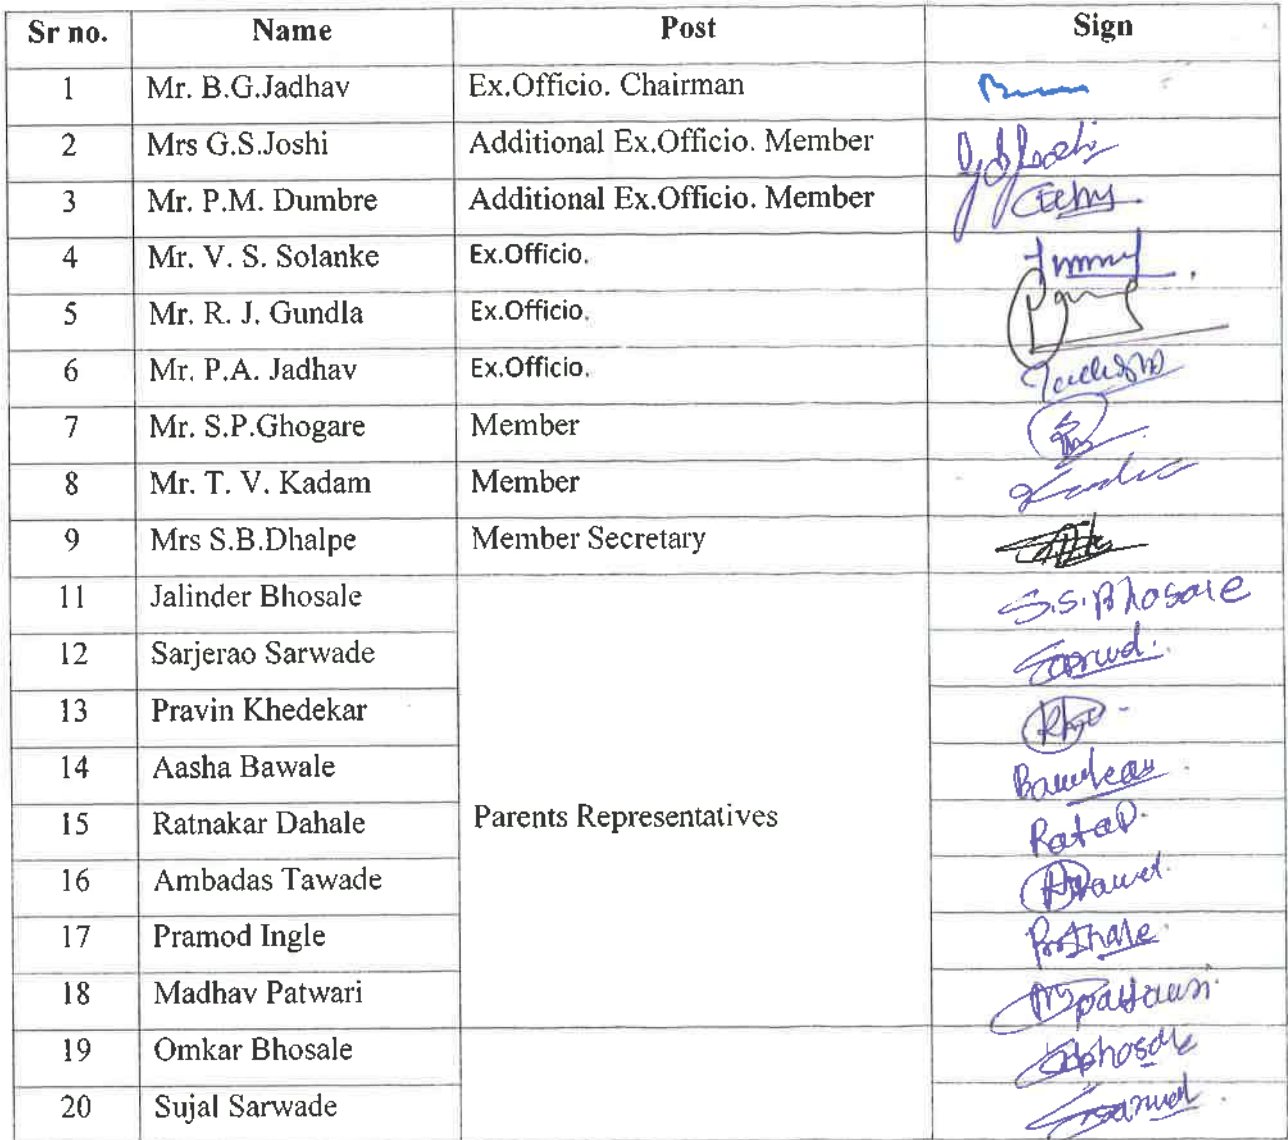 Sr no. Name Post Sign
1 Mr. B.G.Jadhav Ex.Officio. Chairman
2 Mrs G.S.Joshi Additional Ex.Officio. Member
3 Mr. P.M. Dumbre Additional Ex.Officio. Member
4 Mr. V. S. Solanke Ex.Officio.
5 Mr. R. J. Gundla Ex.Officio.
6 Mr. P.A. Jadhav Ex.Officio.
7 Mr. S.P.Ghogare Member
8 Mr. T. V. Kadam Member
9 Mrs S.B.Dhalpe Member Secretary
11 Jalinder Bhosale S.S.Bhosale
12 Sarjerao Sarwade
13 Pravin Khedekar
14 Aasha Bawale
15 Ratnakar Dahale Parents Representatives
16 Ambadas Tawade
17 Pramod Ingle
18 Madhav Patwari
19 Omkar Bhosale
20 Sujal Sarwade